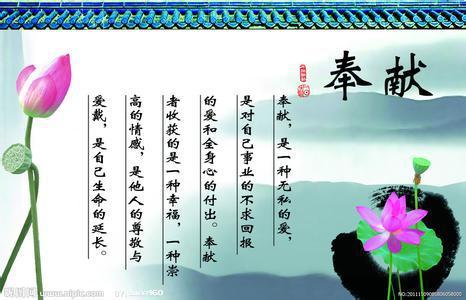 奉献
奉献，是一种无私的爱，
是对自己事业的不求回报
的爱和全身心的付出。奉献
者收获的是一种幸福，一种崇
高的情感，是他人的尊敬与
爱戴，是自己生命的延长。
昵图网 www.nipic.com